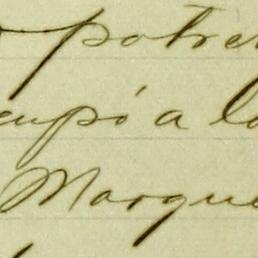 potre
cupó a la
Marque